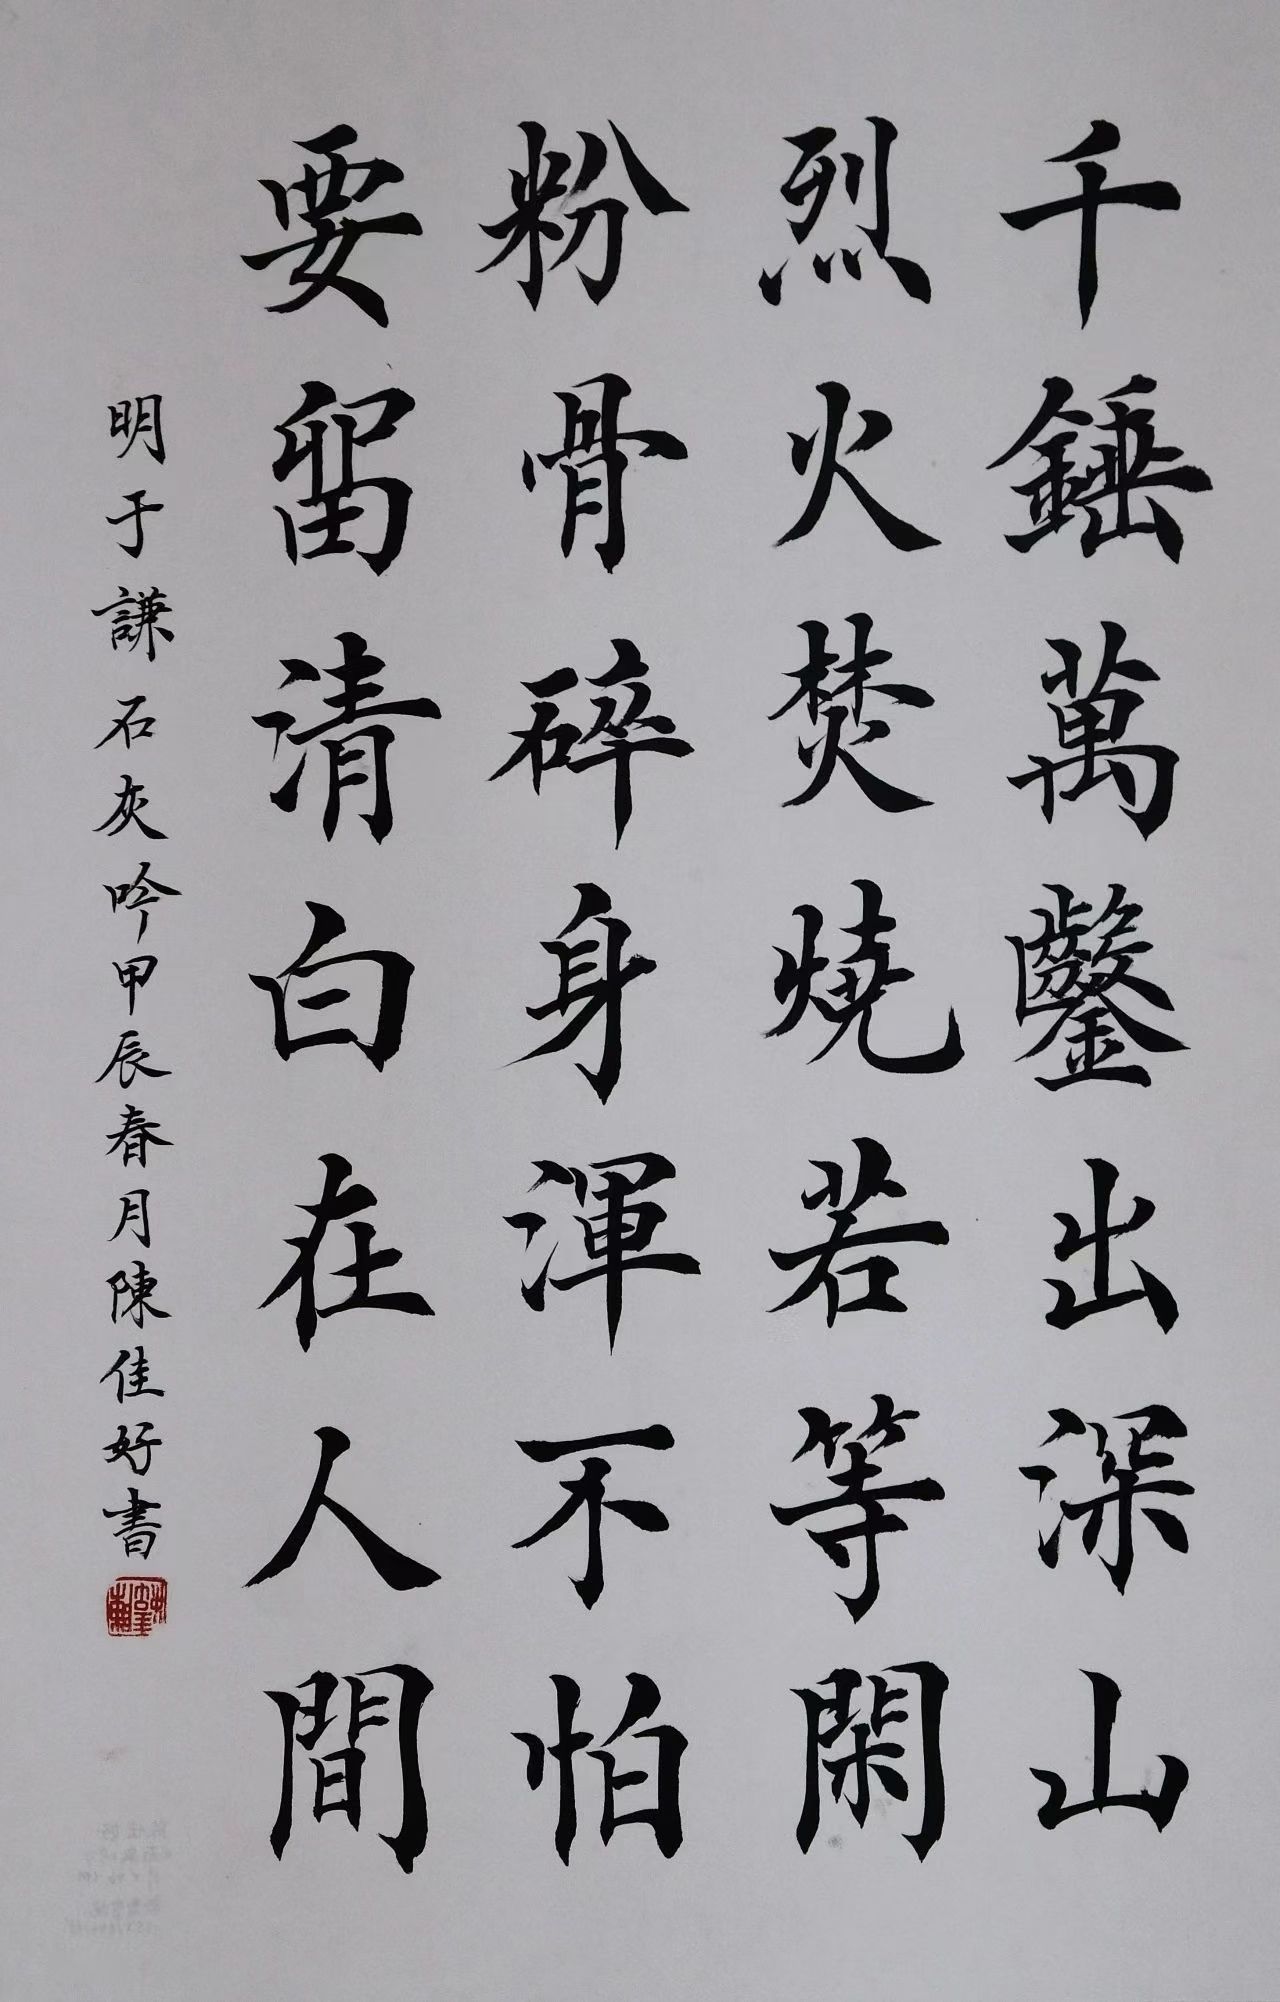 千錘萬鑿出深山
烈火焚燒若等閑
粉骨碎身渾不怕
要留清白在人間
明于謙石灰吟甲辰春月陳佳好書